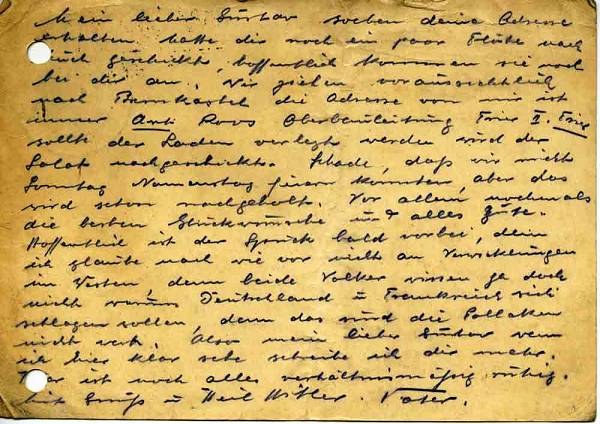 Mein lieber Gustav soeben deine Adresse
erhalten. hatte dir noch ein paar nach
geschickt, hoffentlich kommen sie noch
bei dir an. Wir ziehen voraussichtlich
nach Bernkastel die Adresse von mir ist
immer Roos Oberbauleitung Trier II. Trier
sollte der Laden verlegt werden wird der
Salat nachgeschickt. Schade, daß wir nicht
Sonntag Namenstag feiern konnten, aber das
wird schon nachgeholt. Vor allem nochmals
die besten Glückwünsche und alles Gute.
Hoffentlich ist der Spuck bald vorbei, denn
ich glaube nach wie vor nicht an Verwicklungen
im Westen, denn beide Völker wissen ja doch
nicht warum Deutschland u Frankreich sich
schlagen sollen, denn das sind die Pollaken
nicht wert. Also mein lieber Gustav wenn
ich hier klar sehe schreibe ich dir mehr.
Hier ist noch alles verhältnismäßig ruhig.
Mit Gruß u Heil Hitler. Vater.